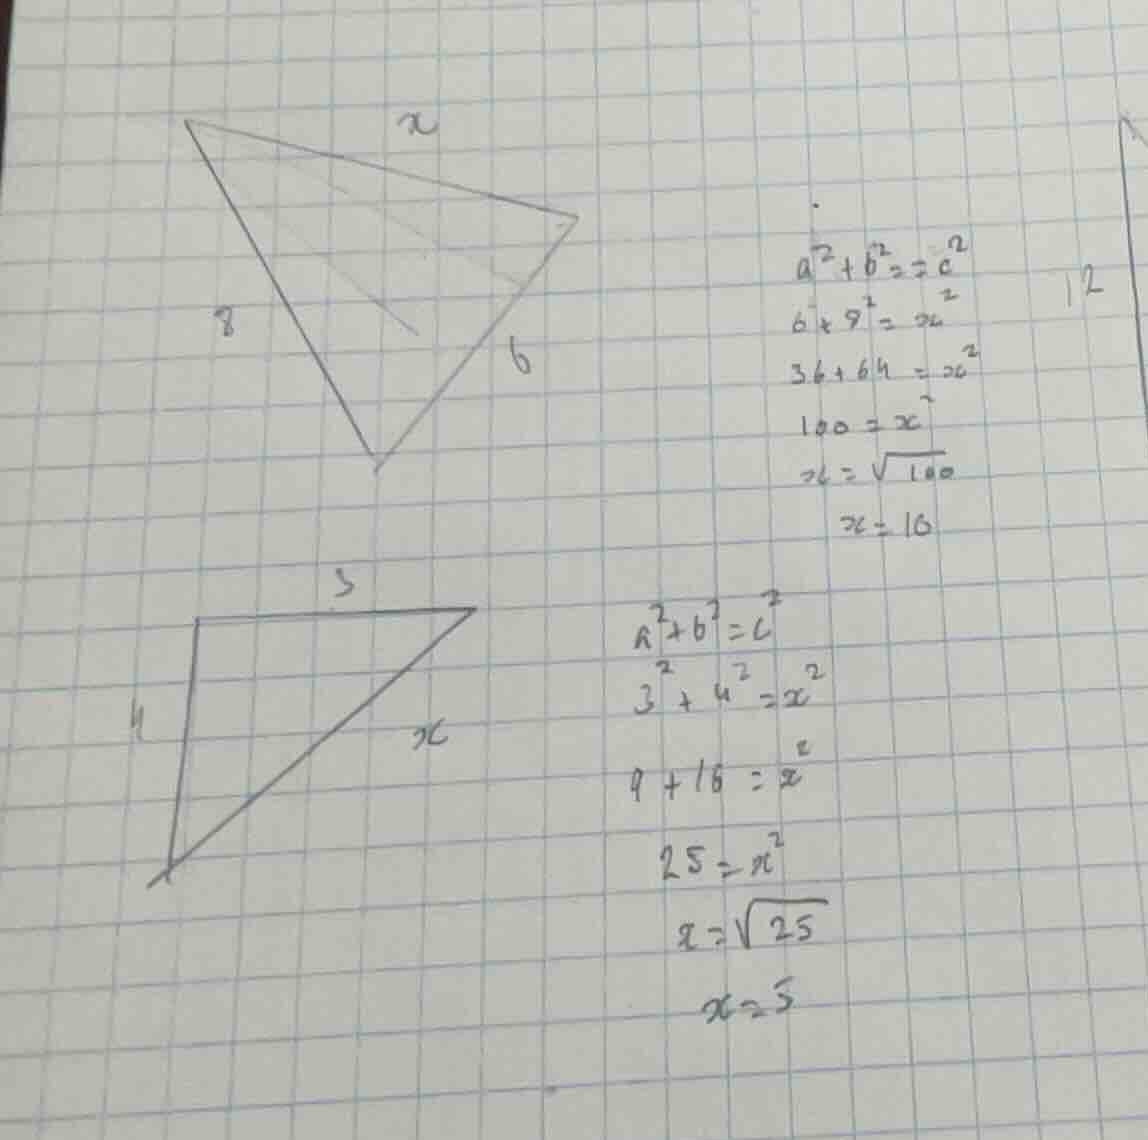 x
8
6
a²+b²==c²
6²+8²=x²
36+64=x²
100=x²
x=√100
x=10
12
3
4
x
a²+b²=c²
3²+4²=x²
9+16=x²
25=x²
x=√25
x=5